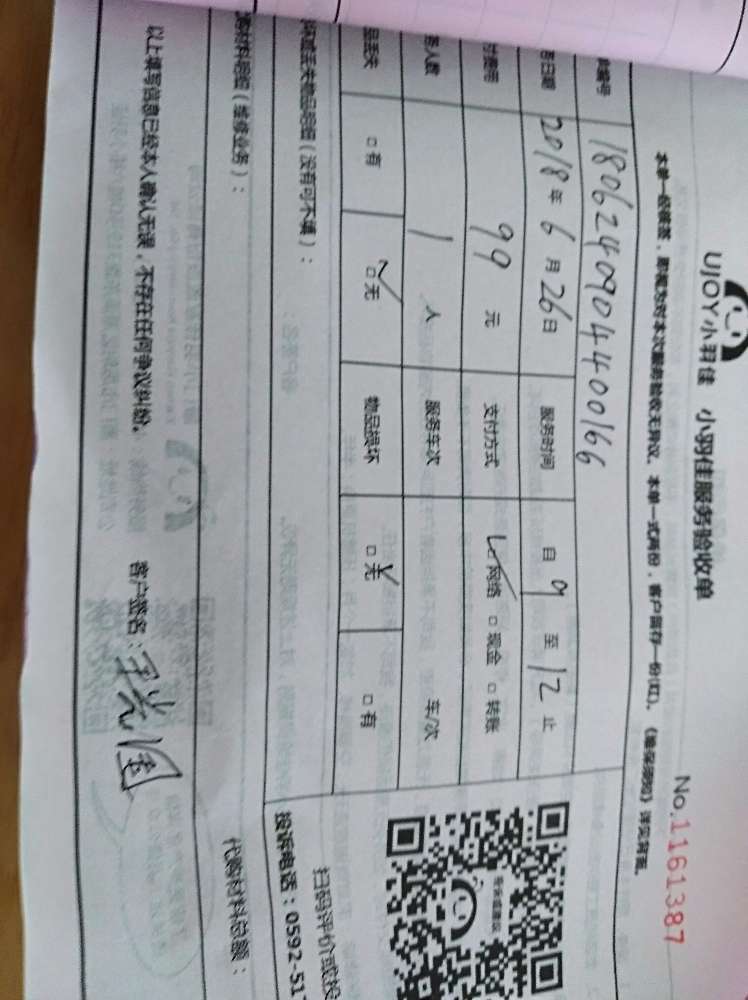 UJOY小羽佳 小羽佳服务验收单
No.1161387
本单一经签答，即视为对本次服务验收无异议。本单一式两份，客户留存一份(红)。《验收须知》详见背面。
单编号 18062409044400166
务日期 2018年6月26日 服务时间 自9至12止
付费用 99元 支付方式 ☑网络 □现金 □转账
务人数 1人 服务车次 车/次
品丢失 □有 ☑无 物品损坏 ☑无 □有
坏或丢失物品明细（没有可不填）：
购材料明细（维修业务）：
代购材料总额：
扫码评价或投
投诉电话：0592-517
以上填写信息已经本人确认无误，不存在任何争议纠纷。 客户签名：